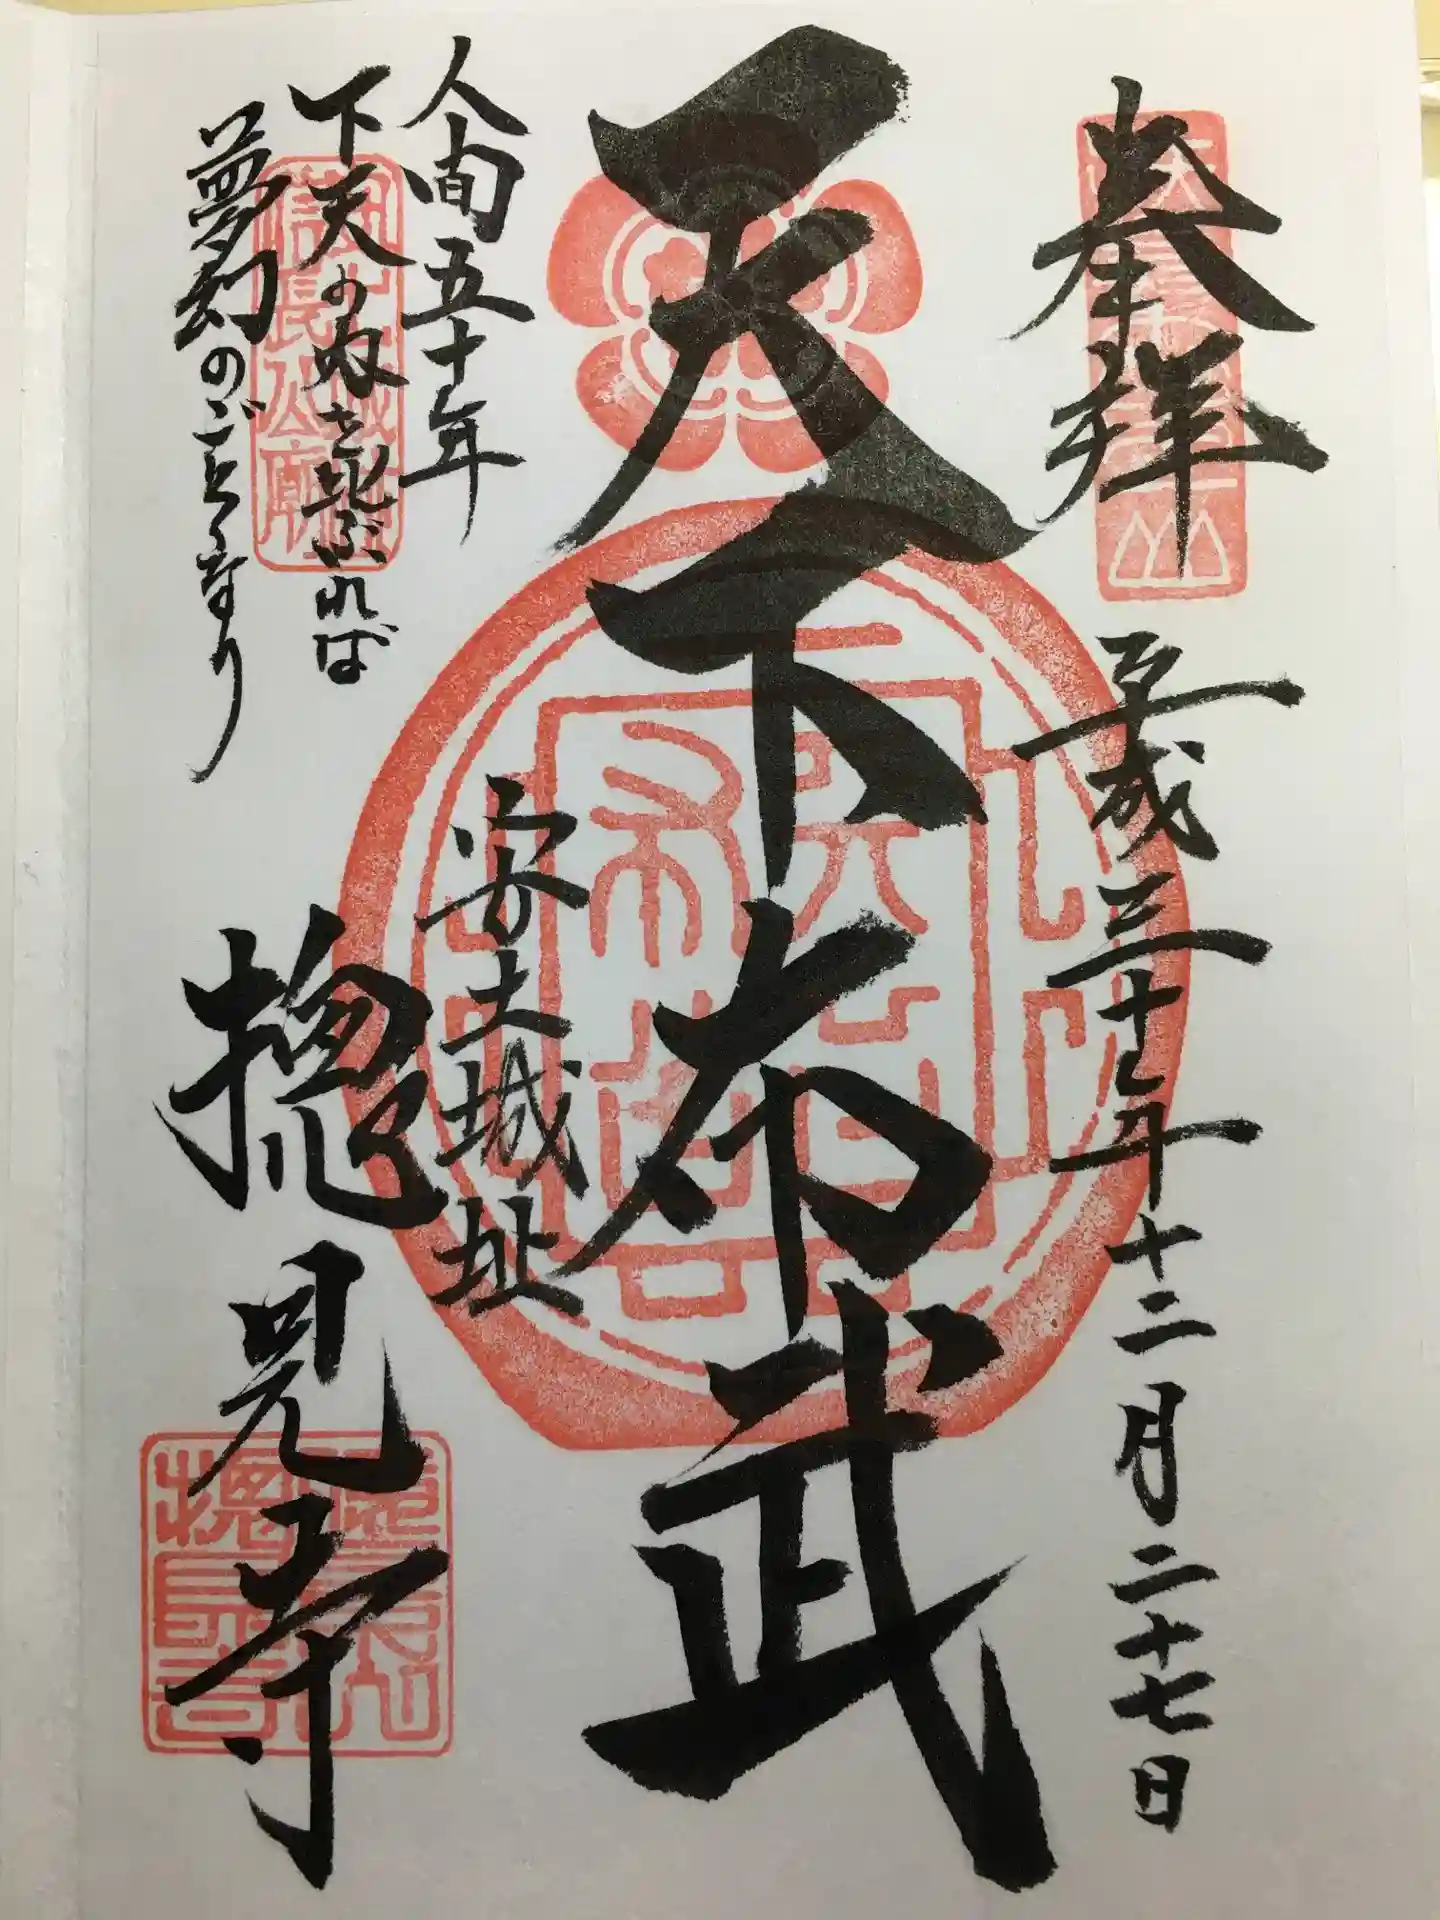 奉拝
平成三十年十二月二十七日
天下布武
人間五十年
下天の内を比ぶれば
夢幻のごとくなり
安土城址
摠見寺